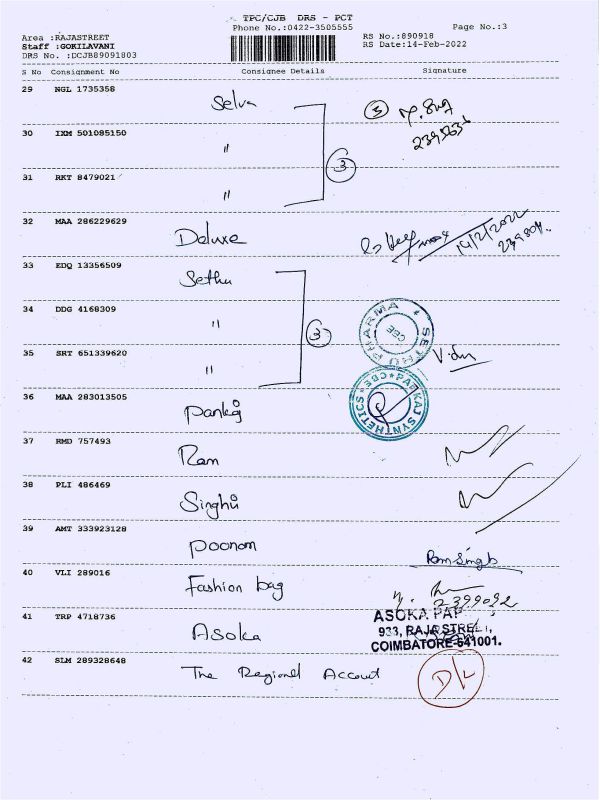 TPC/CJB DRS - PCT
Phone No.:0422-3505555
Page No.:3
Area :RAJASTREET
Staff :GOKILAVANI
DRS No. :DCJB89091803
RS No.:890918
RS Date:14-Feb-2022
S No Consignment No Consignee Details Signature
29 NGL 1735358
Selva
3
30 IXM 501085150
"
3
31 RKT 8479021
"
32 MAA 286229629
Deluxe
14/2/2022
33 EDQ 13356509
Sethu
34 DDG 4168309
"
3
SETHU PHARMA
CBE
35 SRT 651339620
"
36 MAA 283013505
Pankaj
PANKAJ SYNTHETICS CBE
37 RMD 757493
Ram
38 PLI 486469
Singhü
39 AMT 333923128
Poonam
Ram Singh
40 VLI 289016
Fashion bag
2399092
41 TRP 4718736
Asoka
ASOKA PAP
933, RAJA STREET,
COIMBATORE-641001.
42 SLM 289328648
The Regional Account
D/L